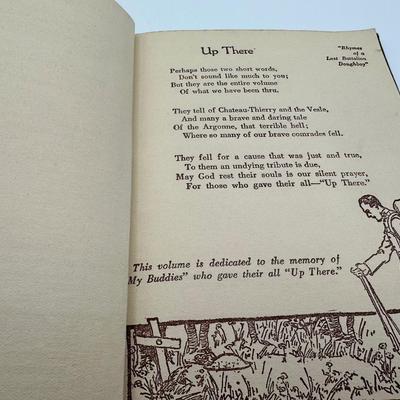 Up There
"Rhymes
of a
Lost Battalion
Doughboy"
Perhaps those two short words,
Don't sound like much to you;
But they are the entire volume
Of what we have been thru.
They tell of Chateau-Thierry and the Vesle,
And many a brave and daring tale
Of the Argonne, that terrible hell;
Where so many of our brave comrades fell.
They fell for a cause that was just and true,
To them an undying tribute is due,
May God rest their souls is our silent prayer,
For those who gave their all—"Up There."
This volume is dedicated to the memory of
My Buddies" who gave their all "Up There."